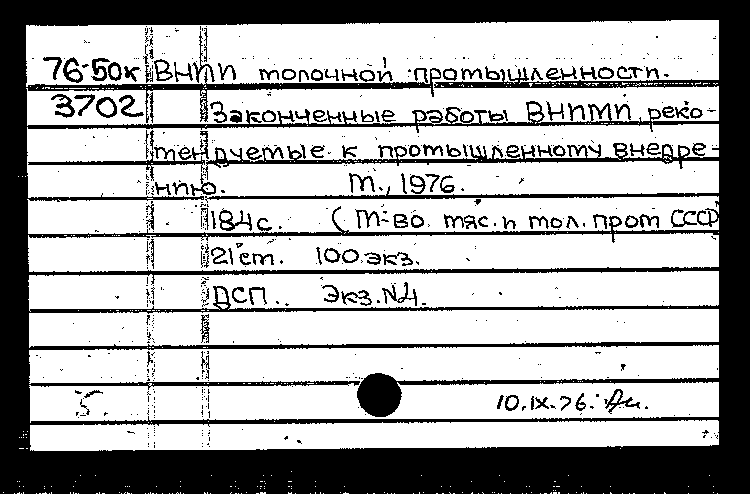 76-50к ВНИИ молочной промышленности.
3702 Законченные работы ВНИМИ, реко-
мендуемые к промышленному внедре-
нию. М., 1976.
184с. (М-во мяс. и мол. пром СССР
21см. 100 экз.
ДСП. Экз.№4.
5. 10.IX.76.